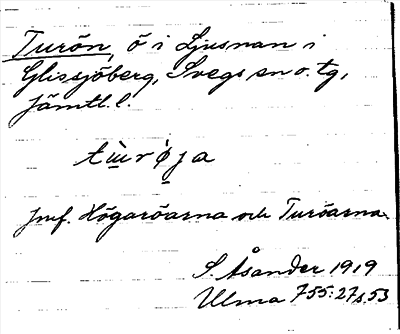 Turön, ö i Ljusnan i
Glissjöberg, Svegs sn o. tg,
Jämtl. l.
tu̲̇rø̲ja
Jmf. Högaröarna och Turöarna.
S. Åsander 1919
Ulma 755:27 s. 53